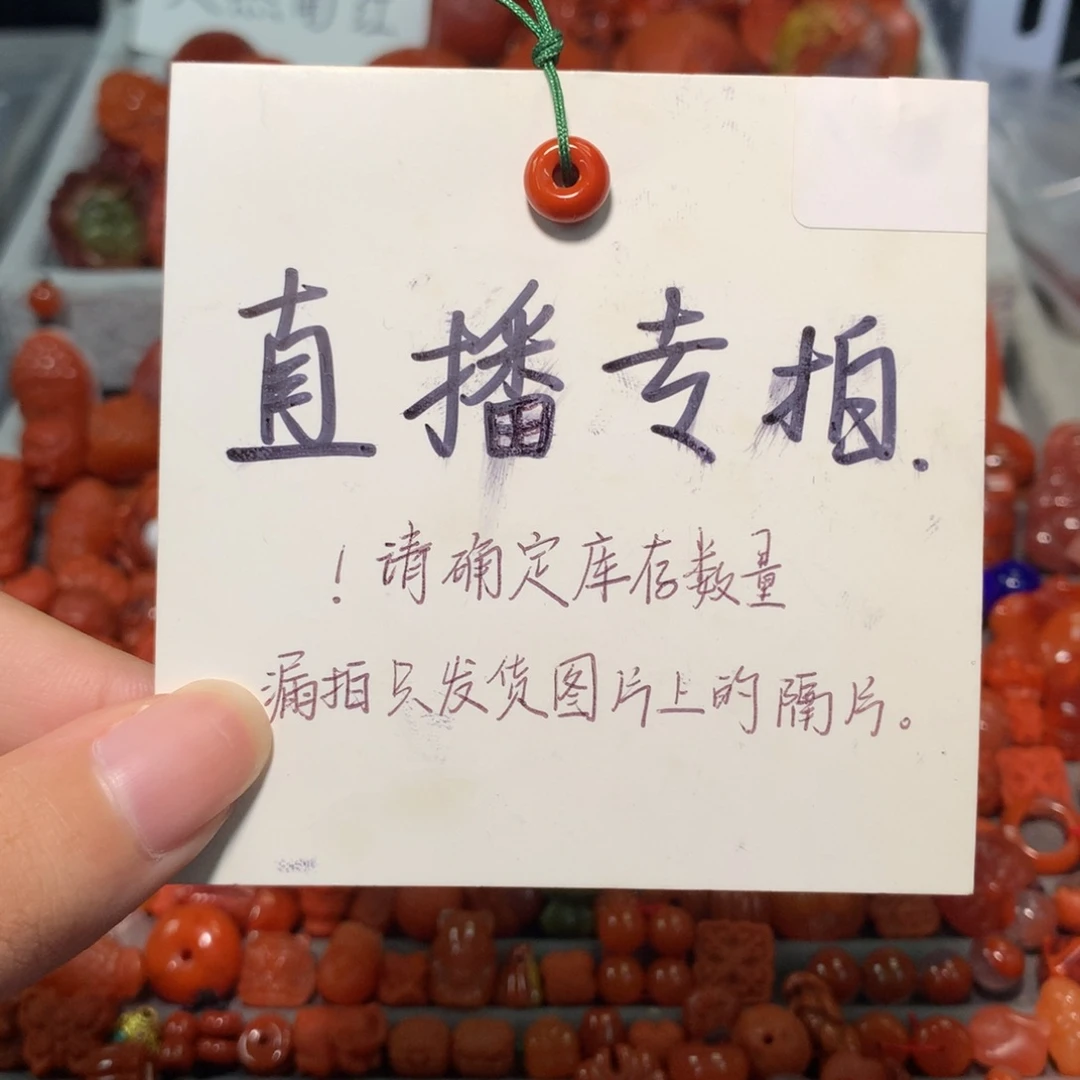 直播专拍.
！请确定库存数量
漏拍只发货图片上的隔片。